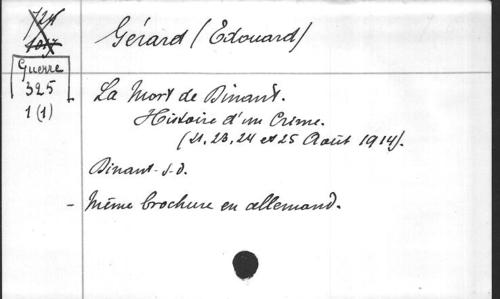 Gérard (Edouard)
Guerre
325
1(1)
La Mort de Dinant.
Histoire d'un Crime.
(21, 23, 24 et 25 Août 1914).
Dinant s.d.
- Même brochure en allemand.